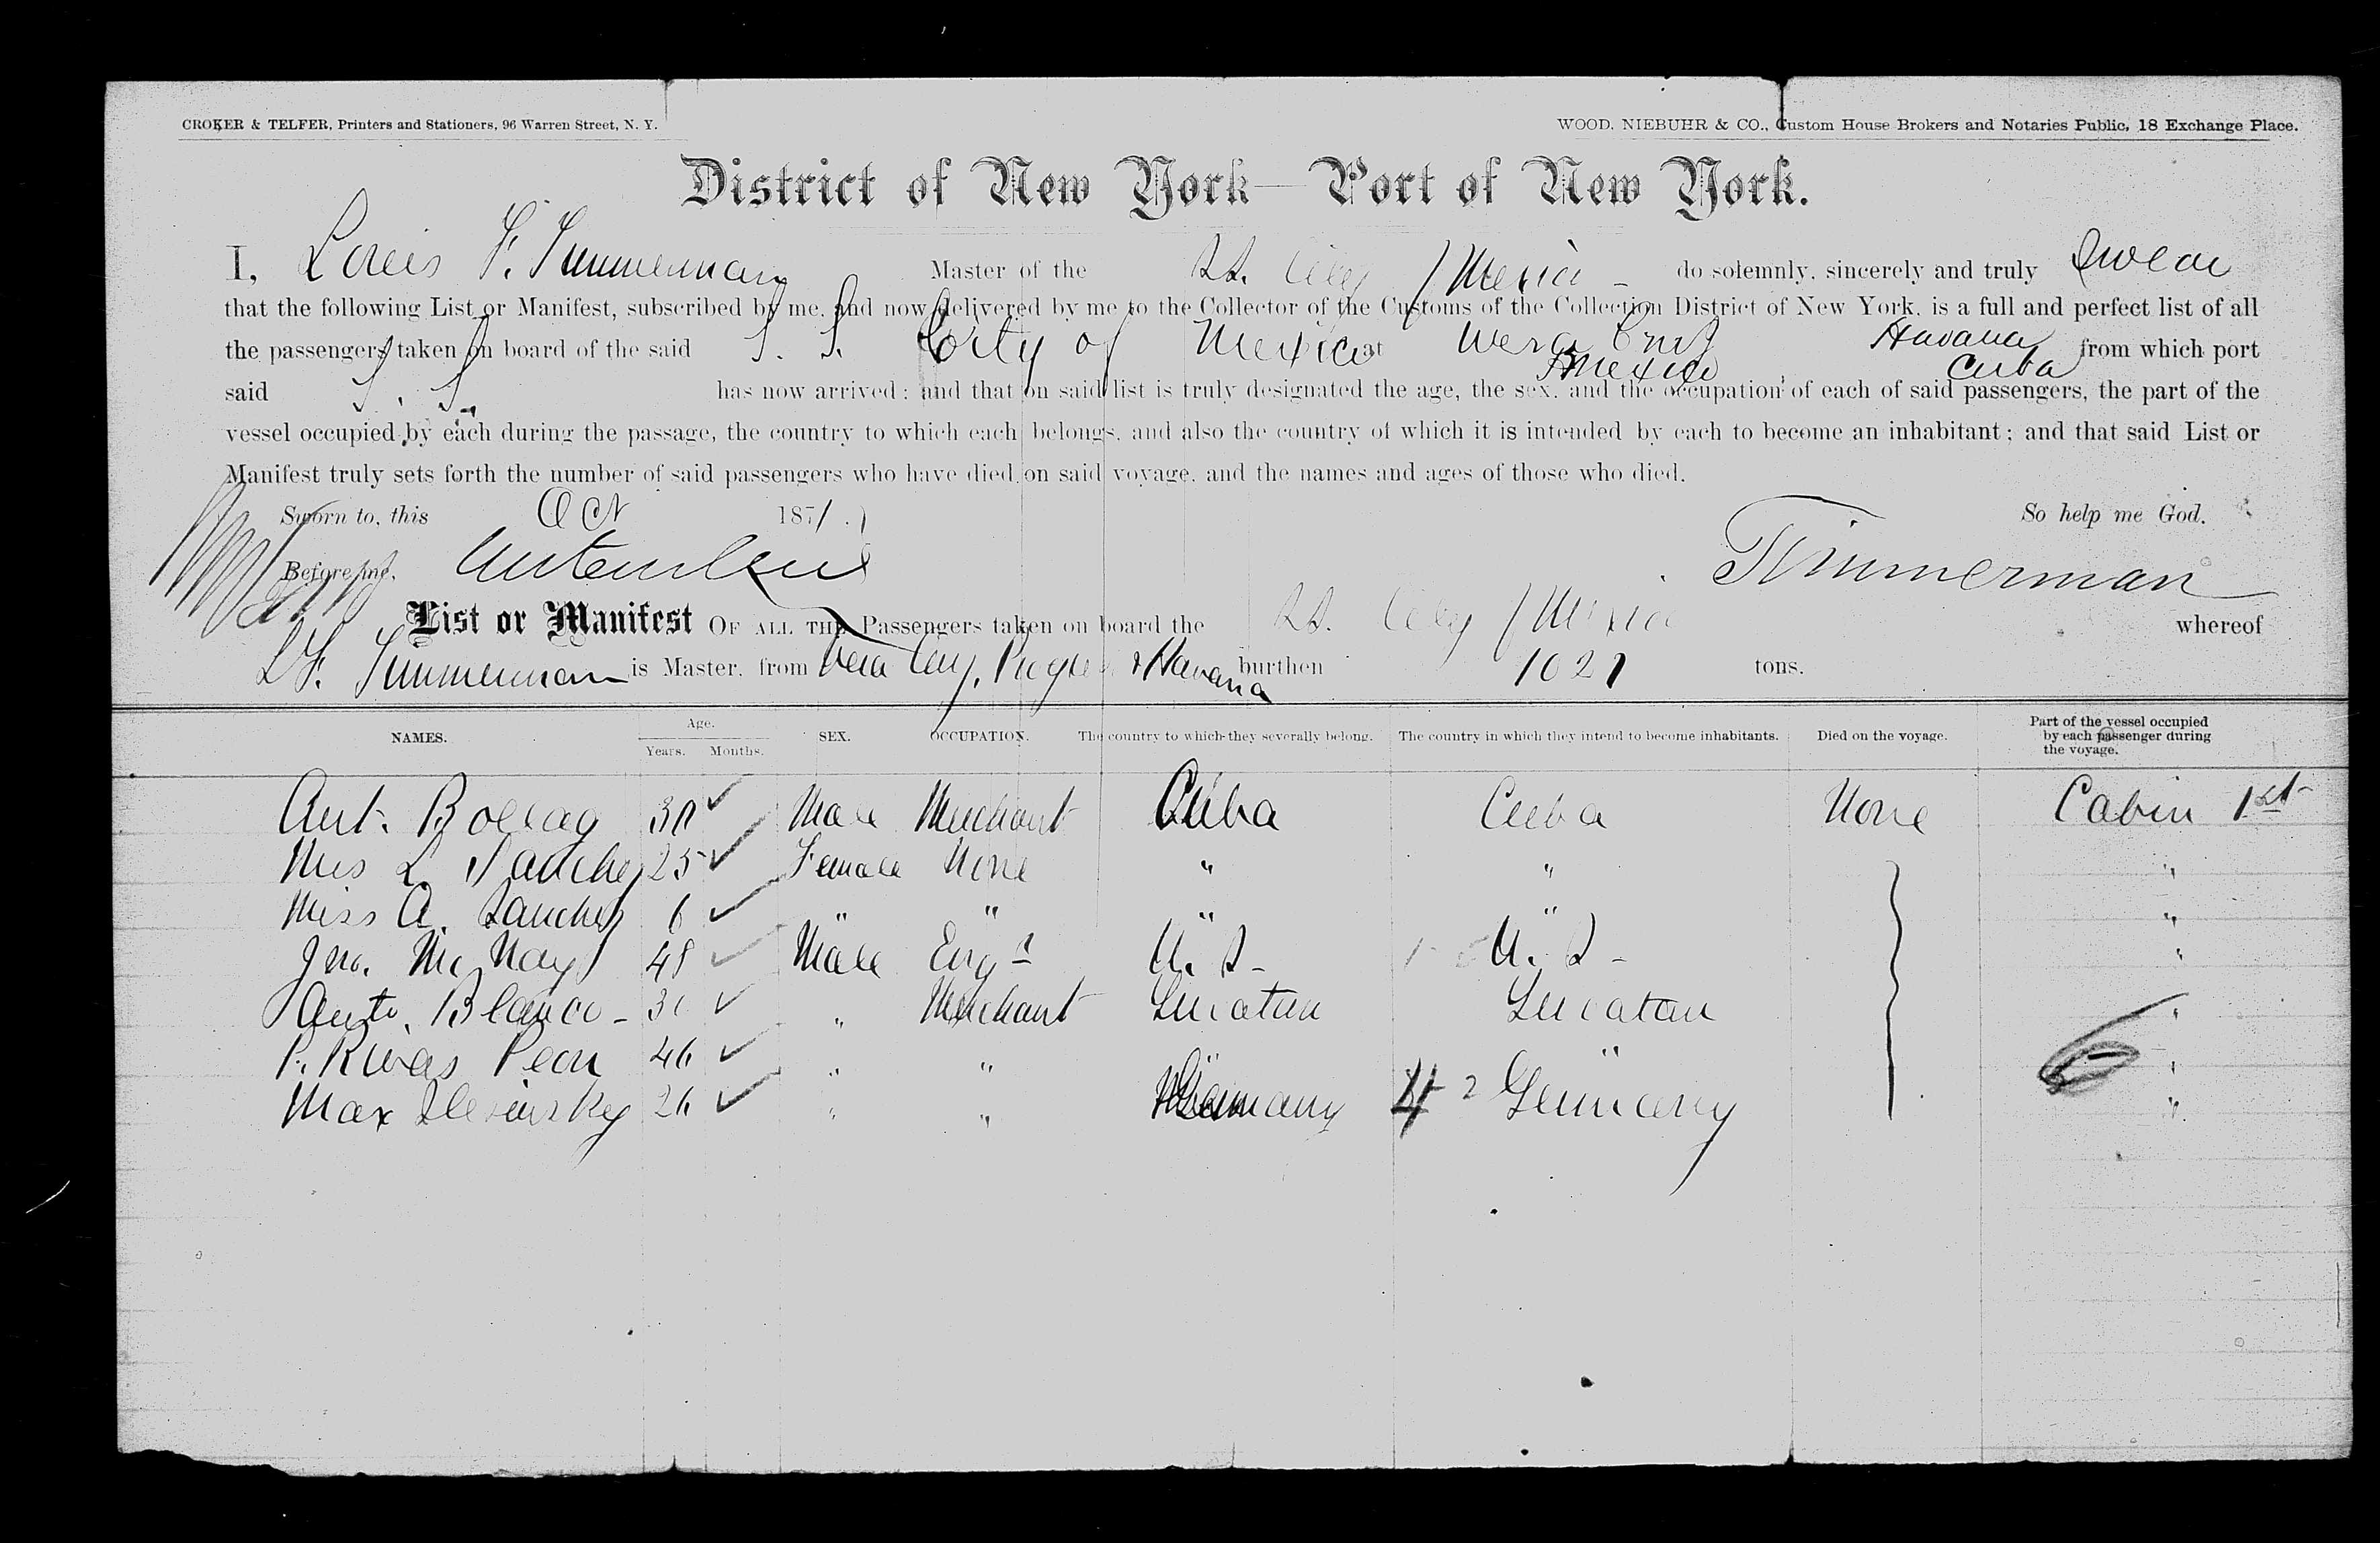 CROKER & TELFER, Printers and Stationers, 96 Warren Street, N. Y.
WOOD, NIEBUHR & CO., Custom House Brokers and Notaries Public, 18 Exchange Place.
District of New York—Port of New York.
I, Louis F. Timmerman Master of the S.S. City of Mexico do solemnly, sincerely and truly swear
that the following List or Manifest, subscribed by me, and now delivered by me to the Collector of the Customs of the Collection District of New York, is a full and perfect list of all
the passengers taken on board of the said S. S. City of Mexico at Vera Cruz Mexico Havana Cuba from which port
said S. S. has now arrived; and that on said list is truly designated the age, the sex, and the occupation of each of said passengers, the part of the
vessel occupied by each during the passage, the country to which each belongs, and also the country of which it is intended by each to become an inhabitant; and that said List or
Manifest truly sets forth the number of said passengers who have died on said voyage, and the names and ages of those who died.
Sworn to, this Oct 1871. So help me God.
Before me, Timmerman
List or Manifest OF ALL THE Passengers taken on board the S.S. City of Mexico whereof
L F. Timmerman is Master, from Vera Cruz, Progreso & Havana burthen 1027 tons.
NAMES. Age. Years. Months. SEX. OCCUPATION. The country to which they severally belong. The country in which they intend to become inhabitants. Died on the voyage. Part of the vessel occupied by each passenger during the voyage.
Ant. Bollag Male Merchant Cuba Cuba None Cabin 1st
Mrs L Sanchez 25 Female None " " "
Miss A. Sanchez 6 " " " " "
Jno. McNay 48 Male Engr U. S - U. S - "
Anto. Blanco - " Merchant Yucatan Yucatan "
P. Rivas Peon 46 " " " " "
Max 26 " " Germany 2 Germany "